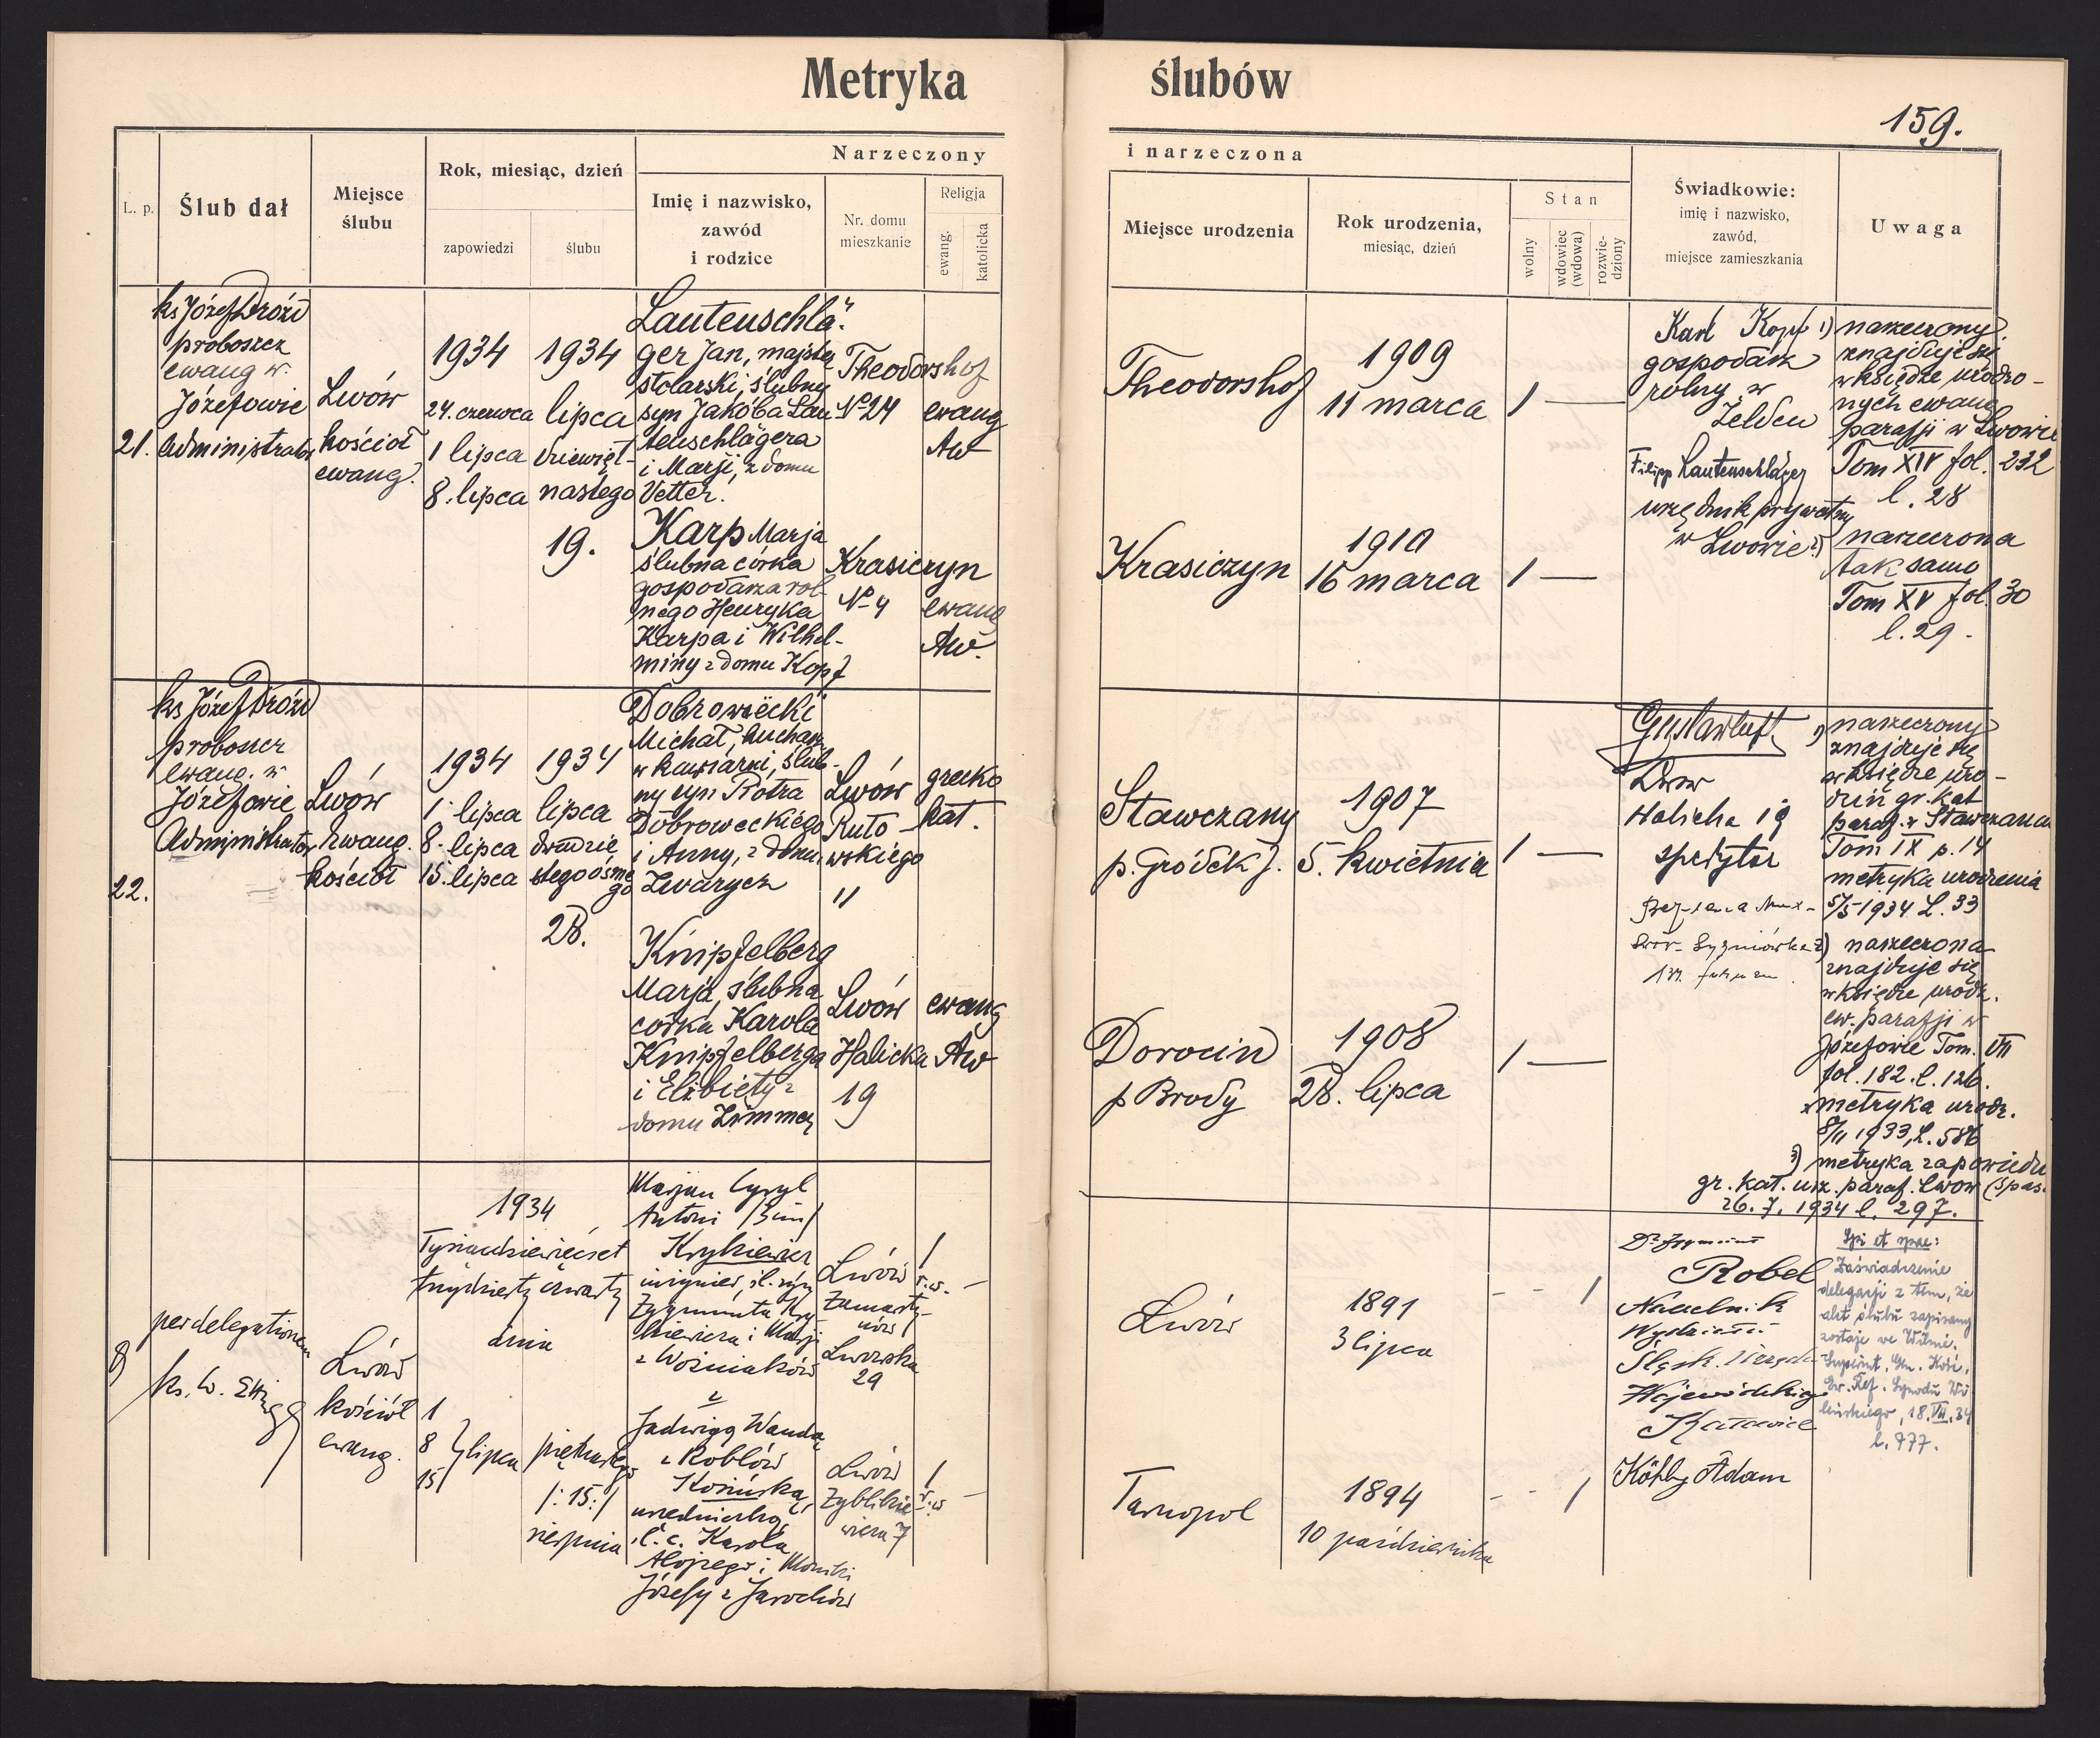 Metryka ślubów
159.
Narzeczony i narzeczona
L. p.
Ślub dał
Miejsce
ślubu
Rok, miesiąc, dzień
zapowiedzi
ślubu
Imię i nazwisko,
zawód
i rodzice
Nr. domu
mieszkanie
Religja
ewang.
katolicka
Miejsce urodzenia
Rok urodzenia,
miesiąc, dzień
Stan
wolny
wdowiec
(wdowa)
rozwie-
dziony
Świadkowie:
imię i nazwisko,
zawód,
miejsce zamieszkania
Uwaga
21.
ks Józef Dróżd
proboszcz
ewang w
Józefowie
Administrator
Lwów
kościół
ewang.
1934
24. czerwca
1 lipca
8. lipca
1934
lipca
dziewięt-
nastego
19.
Lautenschlä-
ger Jan, majster
stolarski, ślubny
syn Jakóba Lau
tenschlägera
i Marji, z domu
Vetter.
Theodorshof
№ 24
ewang
AW
Theodorshof
1909
11 marca
1 —
Karp Marja
ślubna córka
gospodarza rol-
nego Henryka
Karpa i Wilhel-
miny z domu Kopf
Krasiczyn
№ 4
ewang
AW.
Krasiczyn
1910
16 marca
1 —
Karl Kopf
gospodarz
rolny w
Filipp Lautenschläger
urzędnik prywatny
w Lwowie
1) narzeczony
znajduje się
w księdze urodzo-
nych ewang
parafji w Lwowie
Tom XIV fol. 232
l. 28
2) narzeczona
tak samo
Tom XV fol. 30
l. 29.
22.
ks Józef Dróżd
proboszcz
ewang. w
Józefowie
Administrator
Lwów
Ewang.
kościół
1934
1. lipca
8. lipca
15. lipca
1934
lipca
dwudzie
stego ósme
go
28.
Dobrowiecki
Michał, kucharz
w kawiarni, ślub-
ny syn Piotra
Dobrowieckiego
i Anny, z domu
Zwarycz
Lwów
Ruto-
wskiego
11
grecko
kat.
Stawczany
p. Gródek J.
1907
5. kwietnia
1 —
Knipfelberg
Marja, ślubna
córka Karola
Knipfelberga
i Elżbiety z
domu Zimmer
Lwów
Halicka
19
ewang
AW
Dorocin
p Brody
1908
28. lipca
1 —
Gustaw Luft
Lwów
Halicka 19
spedytor
1) narzeczony
znajduje się
w księdze uro-
dzin gr. kat
paraf. w Stawczanach
Tom IX p. 14
metryka urodzenia
5/5 1934 L. 33
2) narzeczona
znajduje się
w księdze urodz.
ew. parafji w
Józefowie Tom. VII
fol. 182. l. 126.
metryka urodz.
8/11 1933, L. 586
3) metryka zapowiedzi
gr. kat. urz. paraf. Lwów (Spas.
26. 7. 1934 l. 297.
per delegationem
Lwów
kościół
ewang.
1934
Tysiącdziewięćset
trzydziesty czwarty
dnia
1
8 } lipca
15
piętnastego
/: 15 :/
sierpnia
Marjan Cyryl
Antoni /3 im/
Krykiewicz
inżynier, śl. syn
Zygmunta Kry-
kiewicza i Marji
z Woźniaków
z
Jadwigą Wandą
z Roblów
Kosińską,
urzedniczką,
śl. c. Karola
Alojzego i Moniki
Józefy z Jarochów
Lwów
Zamarsty-
nów
Lwowska
29
Lwów
Zyblikie
wicza 7
Lwów
1891
3 lipca
Tarnopol
1894
10 października
Robel
Naczelnik
Wydziału
Śląsk. Urzędu
Wojewódzkiego
Katowice
Adam
Spi et spae:
Zaświadczenie
delegacji z tem, że
akt ślubu zapisany
zostaje we Wilnie.
Superint. Gen. Kość.
Ew. Ref. Synodu Wi-
leńskiego, 18. VII. 34
l. 777.